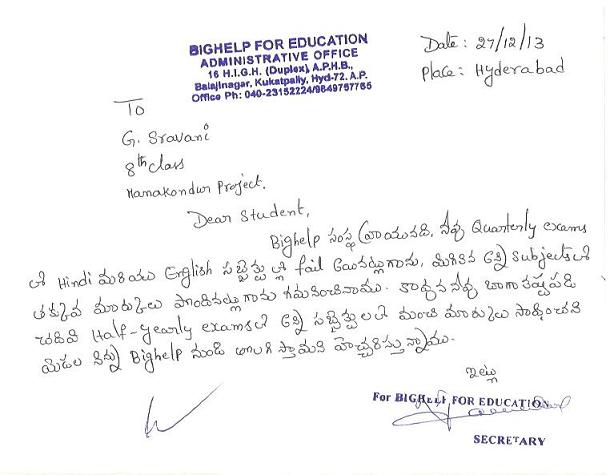 BIGHELP FOR EDUCATION
ADMINISTRATIVE OFFICE
16 H.I.G.H. (Duplex), A.P.H.B.,
Balajinagar, Kukatpally, Hyd-72. A.P.
Office Ph: 040-23152224/9849757765
Date: 27/12/13
Place: Hyderabad
To
G. Sravani
8th class
Manakondur Project.
Dear Student,
Bighelp సంస్థ వ్రాయునది, నీవు Quarterly exams
లో Hindi మరియు English సబ్జెక్టు ల్లో fail అయినట్లుగాను, మిగిలిన అన్ని Subjects లో
తక్కువ మార్కులు పొందినట్లుగాను గమనించినాము. కావున నీవు బాగా కష్టపడి
చదివి Half-yearly exams లో అన్ని సబ్జెక్టులలో మంచి మార్కులు సాధించని
యెడల నిన్ను Bighelp నుండి తొలగిస్తామని హెచ్చరిస్తున్నాము.
ఇట్లు
For BIGHELP FOR EDUCATION
SECRETARY